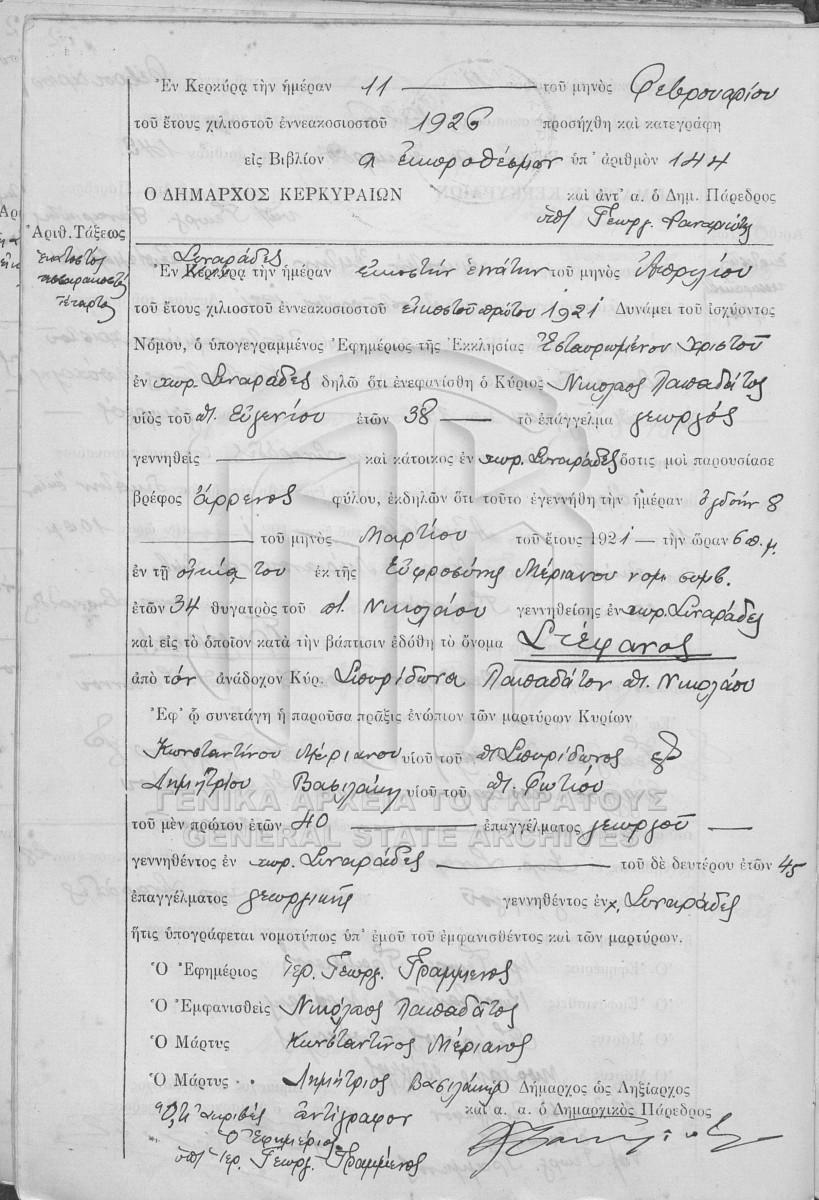 Ἐν Κερκύρᾳ τὴν ἡμέραν 11 τοῦ μηνὸς Φεβρουαρίου
τοῦ ἔτους χιλιοστοῦ ἐννεακοσιοστοῦ 1926 προσήχθη καὶ κατεγράφη
εἰς Βιβλίον α ἐκπροθέσμων ὑπ' ἀριθμὸν 144
Ο ΔΗΜΑΡΧΟΣ ΚΕΡΚΥΡΑΙΩΝ καὶ ἀντ' α. ὁ Δημ. Πάρεδρος
ὑπ Γεωργ. Φαναριώτης
Ἀριθ. Τάξεως
ἑκατοστὸς
τεσσαρακοστὸς
τέταρτος
Σιναράδες
Ἐν Κερκύρᾳ τὴν ἡμέραν εἰκοστὴν ἐνάτην τοῦ μηνὸς Ἀπριλίου
τοῦ ἔτους χιλιοστοῦ ἐννεακοσιοστοῦ εἰκοστοῦ πρώτου 1921 Δυνάμει τοῦ ἰσχύοντος
Νόμου, ὁ ὑπογεγραμμένος Ἐφημέριος τῆς Ἐκκλησίας Ἐσταυρωμένου Χριστοῦ
ἐν χωρ. Σιναράδες δηλῶ ὅτι ἐνεφανίσθη ὁ Κύριος Νικόλαος Παπαδάτος
υἱὸς τοῦ π. Εὐγενίου ἐτῶν 38 τὸ ἐπάγγελμα γεωργός
γεννηθεὶς καὶ κάτοικος ἐν χωρ. Σιναράδες ὅστις μοὶ παρουσίασε
βρέφος ἄρρενος φύλου, ἐκδηλῶν ὅτι τοῦτο ἐγεννήθη τὴν ἡμέραν ὀγδόην 8
τοῦ μηνὸς Μαρτίου τοῦ ἔτους 1921 τὴν ὥραν 6 π.μ.
ἐν τῇ οἰκίᾳ του ἐκ τῆς Εὐφροσύνης Μέριανου νομ. συμβ.
ἐτῶν 34 θυγατρὸς τοῦ π. Νικολάου γεννηθείσης ἐν χωρ. Σιναράδες
καὶ εἰς τὸ ὁποῖον κατὰ τὴν βάπτισιν ἐδόθη τὸ ὄνομα Στέφανος
ἀπὸ τὸν ἀνάδοχον Κύρ. Σπυρίδωνα Παπαδάτον π. Νικολάου
Ἐφ' ᾧ συνετάγη ἡ παροῦσα πρᾶξις ἐνώπιον τῶν μαρτύρων Κυρίων
Κωνσταντίνου Μέριανου υἱοῦ τοῦ π. Σπυρίδωνος
Δημητρίου Βασιλάκη υἱοῦ τοῦ π. Φωτίου
ΓΕΝΙΚΑ ΑΡΧΕΙΑ ΤΟΥ ΚΡΑΤΟΥΣ
τοῦ μὲν πρώτου ἐτῶν 40 ἐπαγγέλματος γεωργοῦ
GENERAL STATE ARCHIVES
γεννηθέντος ἐν χωρ. Σιναράδες τοῦ δὲ δευτέρου ἐτῶν 45
ἐπαγγέλματος γεωργικῆς γεννηθέντος ἐν χ. Σιναράδες
ἥτις ὑπογράφεται νομοτύπως ὑπ' ἐμοῦ τοῦ ἐμφανισθέντος καὶ τῶν μαρτύρων.
Ὁ Ἐφημέριος Ἱερ. Γεωργ. Γραμμένος
Ὁ Ἐμφανισθεὶς Νικόλαος Παπαδάτος
Ὁ Μάρτυς Κωνσταντῖνος Μέριανος
Ὁ Μάρτυς Δημήτριος Βασιλάκης Ὁ Δήμαρχος ὡς Ληξίαρχος
Ὅτι ἀκριβὲς ἀντίγραφον καὶ α. α. ὁ Δημαρχικὸς Πάρεδρος
Ὁ Ἐφημέριος
ὑπ Ἱερ. Γεωργ. Γραμμένος